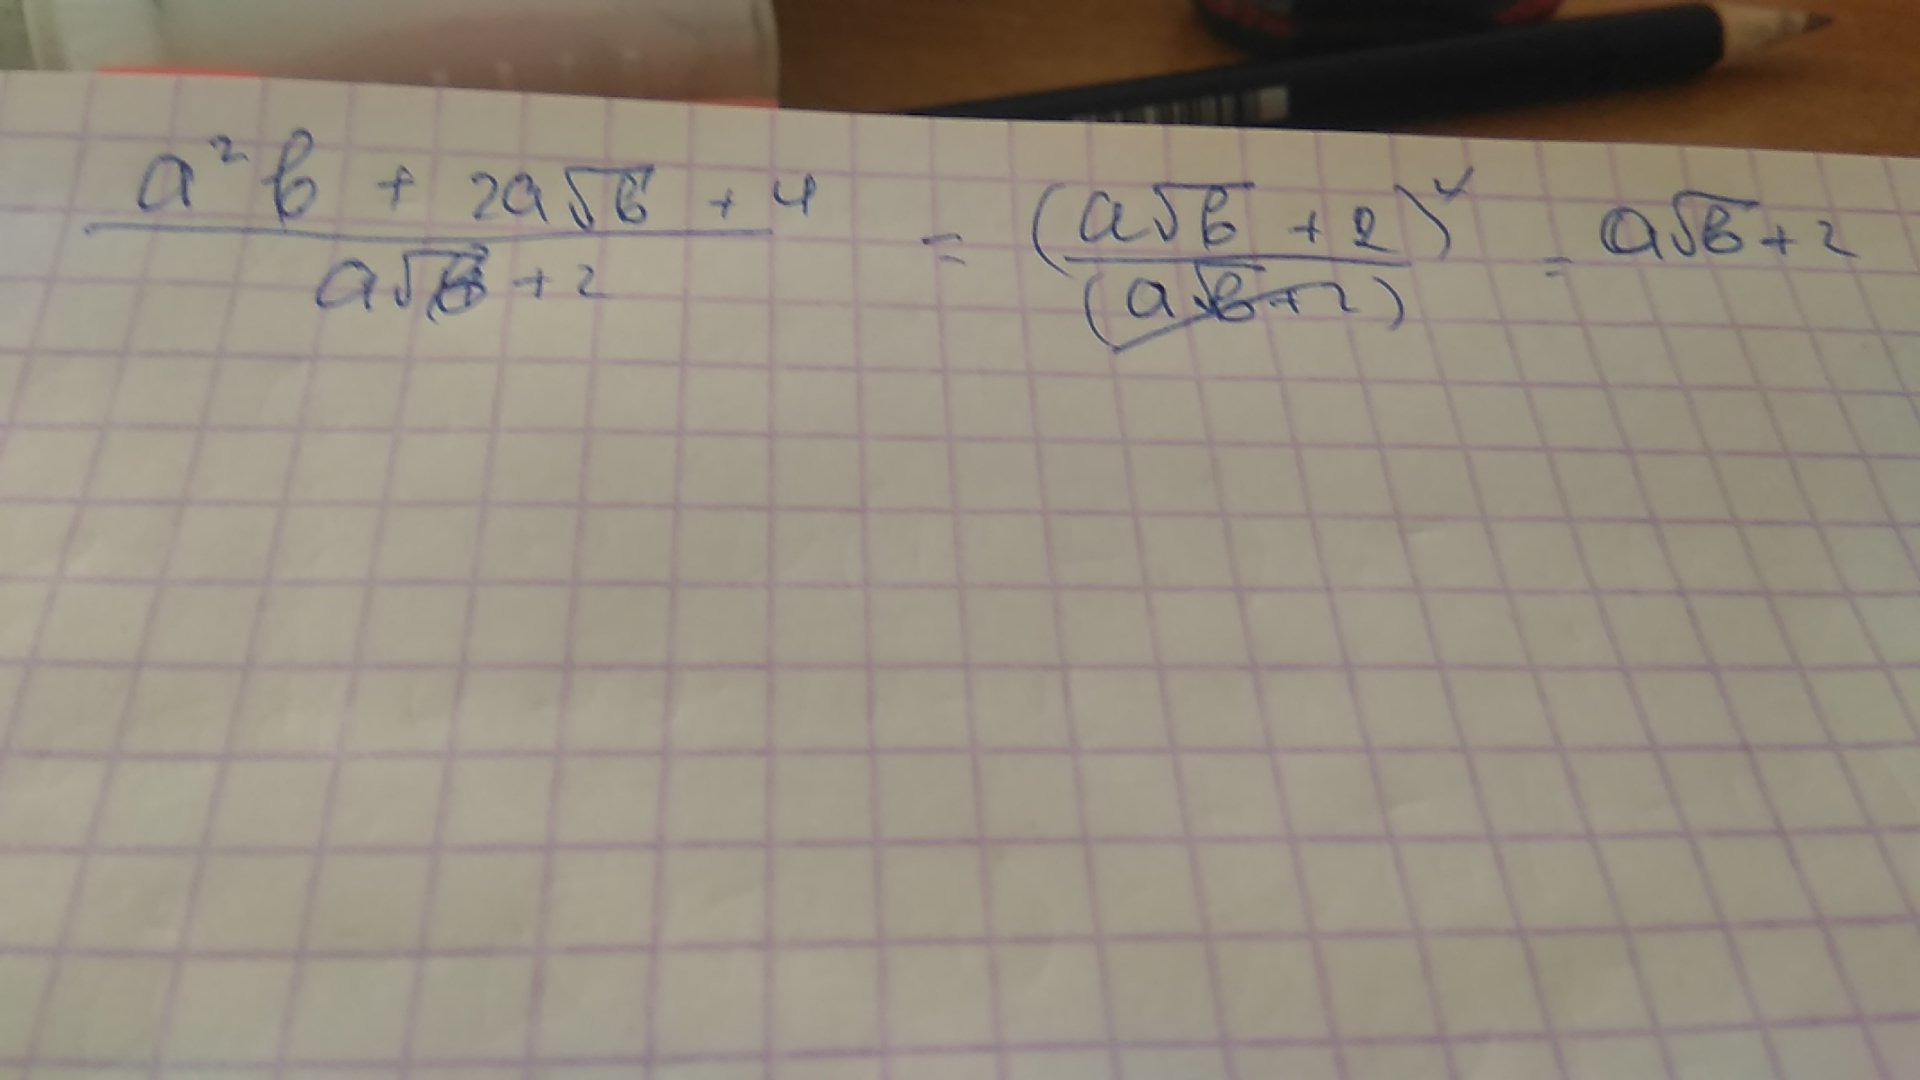 (a²b + 2a√b + 4) / (a√b + 2) = (a√b + 2)² / (a√b + 2) = a√b + 2